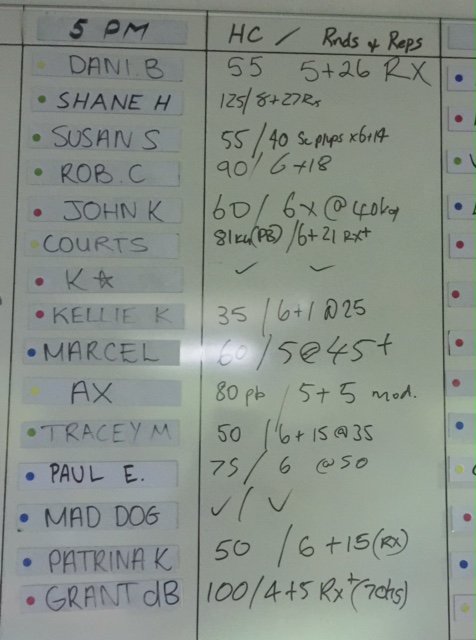 5 PM HC / Rnds & Reps
DANI.B 55 5+26 RX
SHANE H 125/8+27Rx
SUSAN S 55/40 x6+14
ROB.C 90/6+18
JOHN K 60/6x@40kg
COURTS 81kg(PB)/6+21 Rx+
K☆ ✓ ✓
KELLIE K 35/6+1@25
MARCEL 60/5@45+
AX 80 pb/5+5 mod.
TRACEY M 50/6+15@35
PAUL E. 75/6 @50
MAD DOG ✓/✓
PATRINA K 50/6+15(RX)
GRANT dB 100/4+5 Rx+